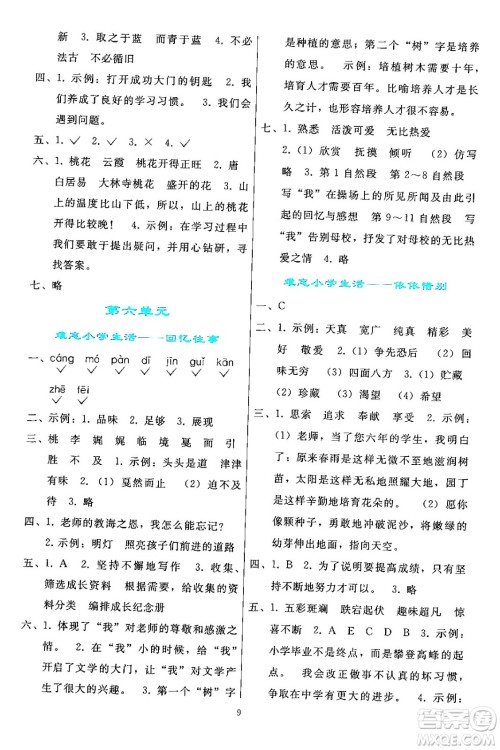 新　3. 取之于蓝　而青于蓝　4. 不必
法古　不必循旧
四、1. 示例：打开成功大门的钥匙　2. 我
们养成了良好的学习习惯。　3. 我们会
遇到问题。
五、1. ✓　2. ✓　4. ✓
六、1. 桃花　云霞　桃花开得正旺　2. 唐
白居易　大林寺桃花　盛开的桃花
3. 示例：山上的温度比山下低，所以桃花
开得比较晚！　4. 示例：在学习过程中
我们要敢于提出疑问，并用心钻研，寻
找答案。
七、略
第六单元
难忘小学生活——回忆往事
一、cáng　mó　pàn　dī　jīn　guǐ　kān
✓　✓　✓　✓　✓　✓　✓
zhē　lēi
✓　✓
二、示例：1. 品味　2. 足够　3. 展现
三、桃　李　娓　娓　临　境　夏　而
胜　不　及　1. 示例：头头是道　津津
有味　2. （1）戛然而止　（2）身临其境
3. 略
四、1. 老师的教海之恩，我怎么能忘记？
2. 示例：明灯　照亮孩子们前进的道路
五、1. A　2. 坚持不懈地写作　3. 收集、
筛选成长资料　4. 示例：给收集的资料
资料分类　编排成长纪念册
六、1. 体现了“我”对老师的尊敬和感激之
情。　2. 在“我”小的时候，给“我”
开启了文学的大门，让“我”对文学产生
兴趣。　3. 略　4. 第一个“树”字
是种植的意思；第二个“树”字是培养
的意思　示例：培植树木需要十年，
培育人才需要百年。比喻培养人才是长
久之计，也表示培养人才很不容易。
七、1. 熟悉　活泼可爱　无比热爱
2. （1）欣赏　抚摸　倾听　（2）仿写
略　3. 第1自然段　第2～8自然段
写“我”在操场上的所见所闻及由此引
起的回忆与感想　第9～11自然段
写“我”告别母校，抒发了对母校的无
比热爱之情　4. 略
难忘小学生活——依依惜别
一、C
二、1. 示例：天真　宽广　纯真　精彩
2. 示例：（1）争先恐后　（2）回
味无穷　（3）四面八方　3. （1）贮藏
（2）珍藏　（3）渴望　（4）希望
三、1. 思索　追求　奉献　享受　2. 示
例：（1）老师，当了您六年的学生，我
把您比作春雨。（2）难忘您的教诲。
原来春雨不知疲倦地滋润树
苗，太阳无私地照耀大地，园丁
是这样辛勤培育花朵的。（3）愿您
像颗种子，勇敢地冲破泥沙，将嫩绿的
幼芽伸出地面，指向天空。
四、1. 略　2. 为了要提高成绩，只有坚
持不断地努力才行。　3. 略
五、1. 五彩斑斓　跌宕起伏　趣味超凡　惊
喜不断　2. A　E　C　D　B　3. 示例：
小学毕业不是终点，而是攀登高峰的又一
起点。我会改正做事不认真的坏习惯，
争取在中学有更大的进步。　4. 略
9
答案